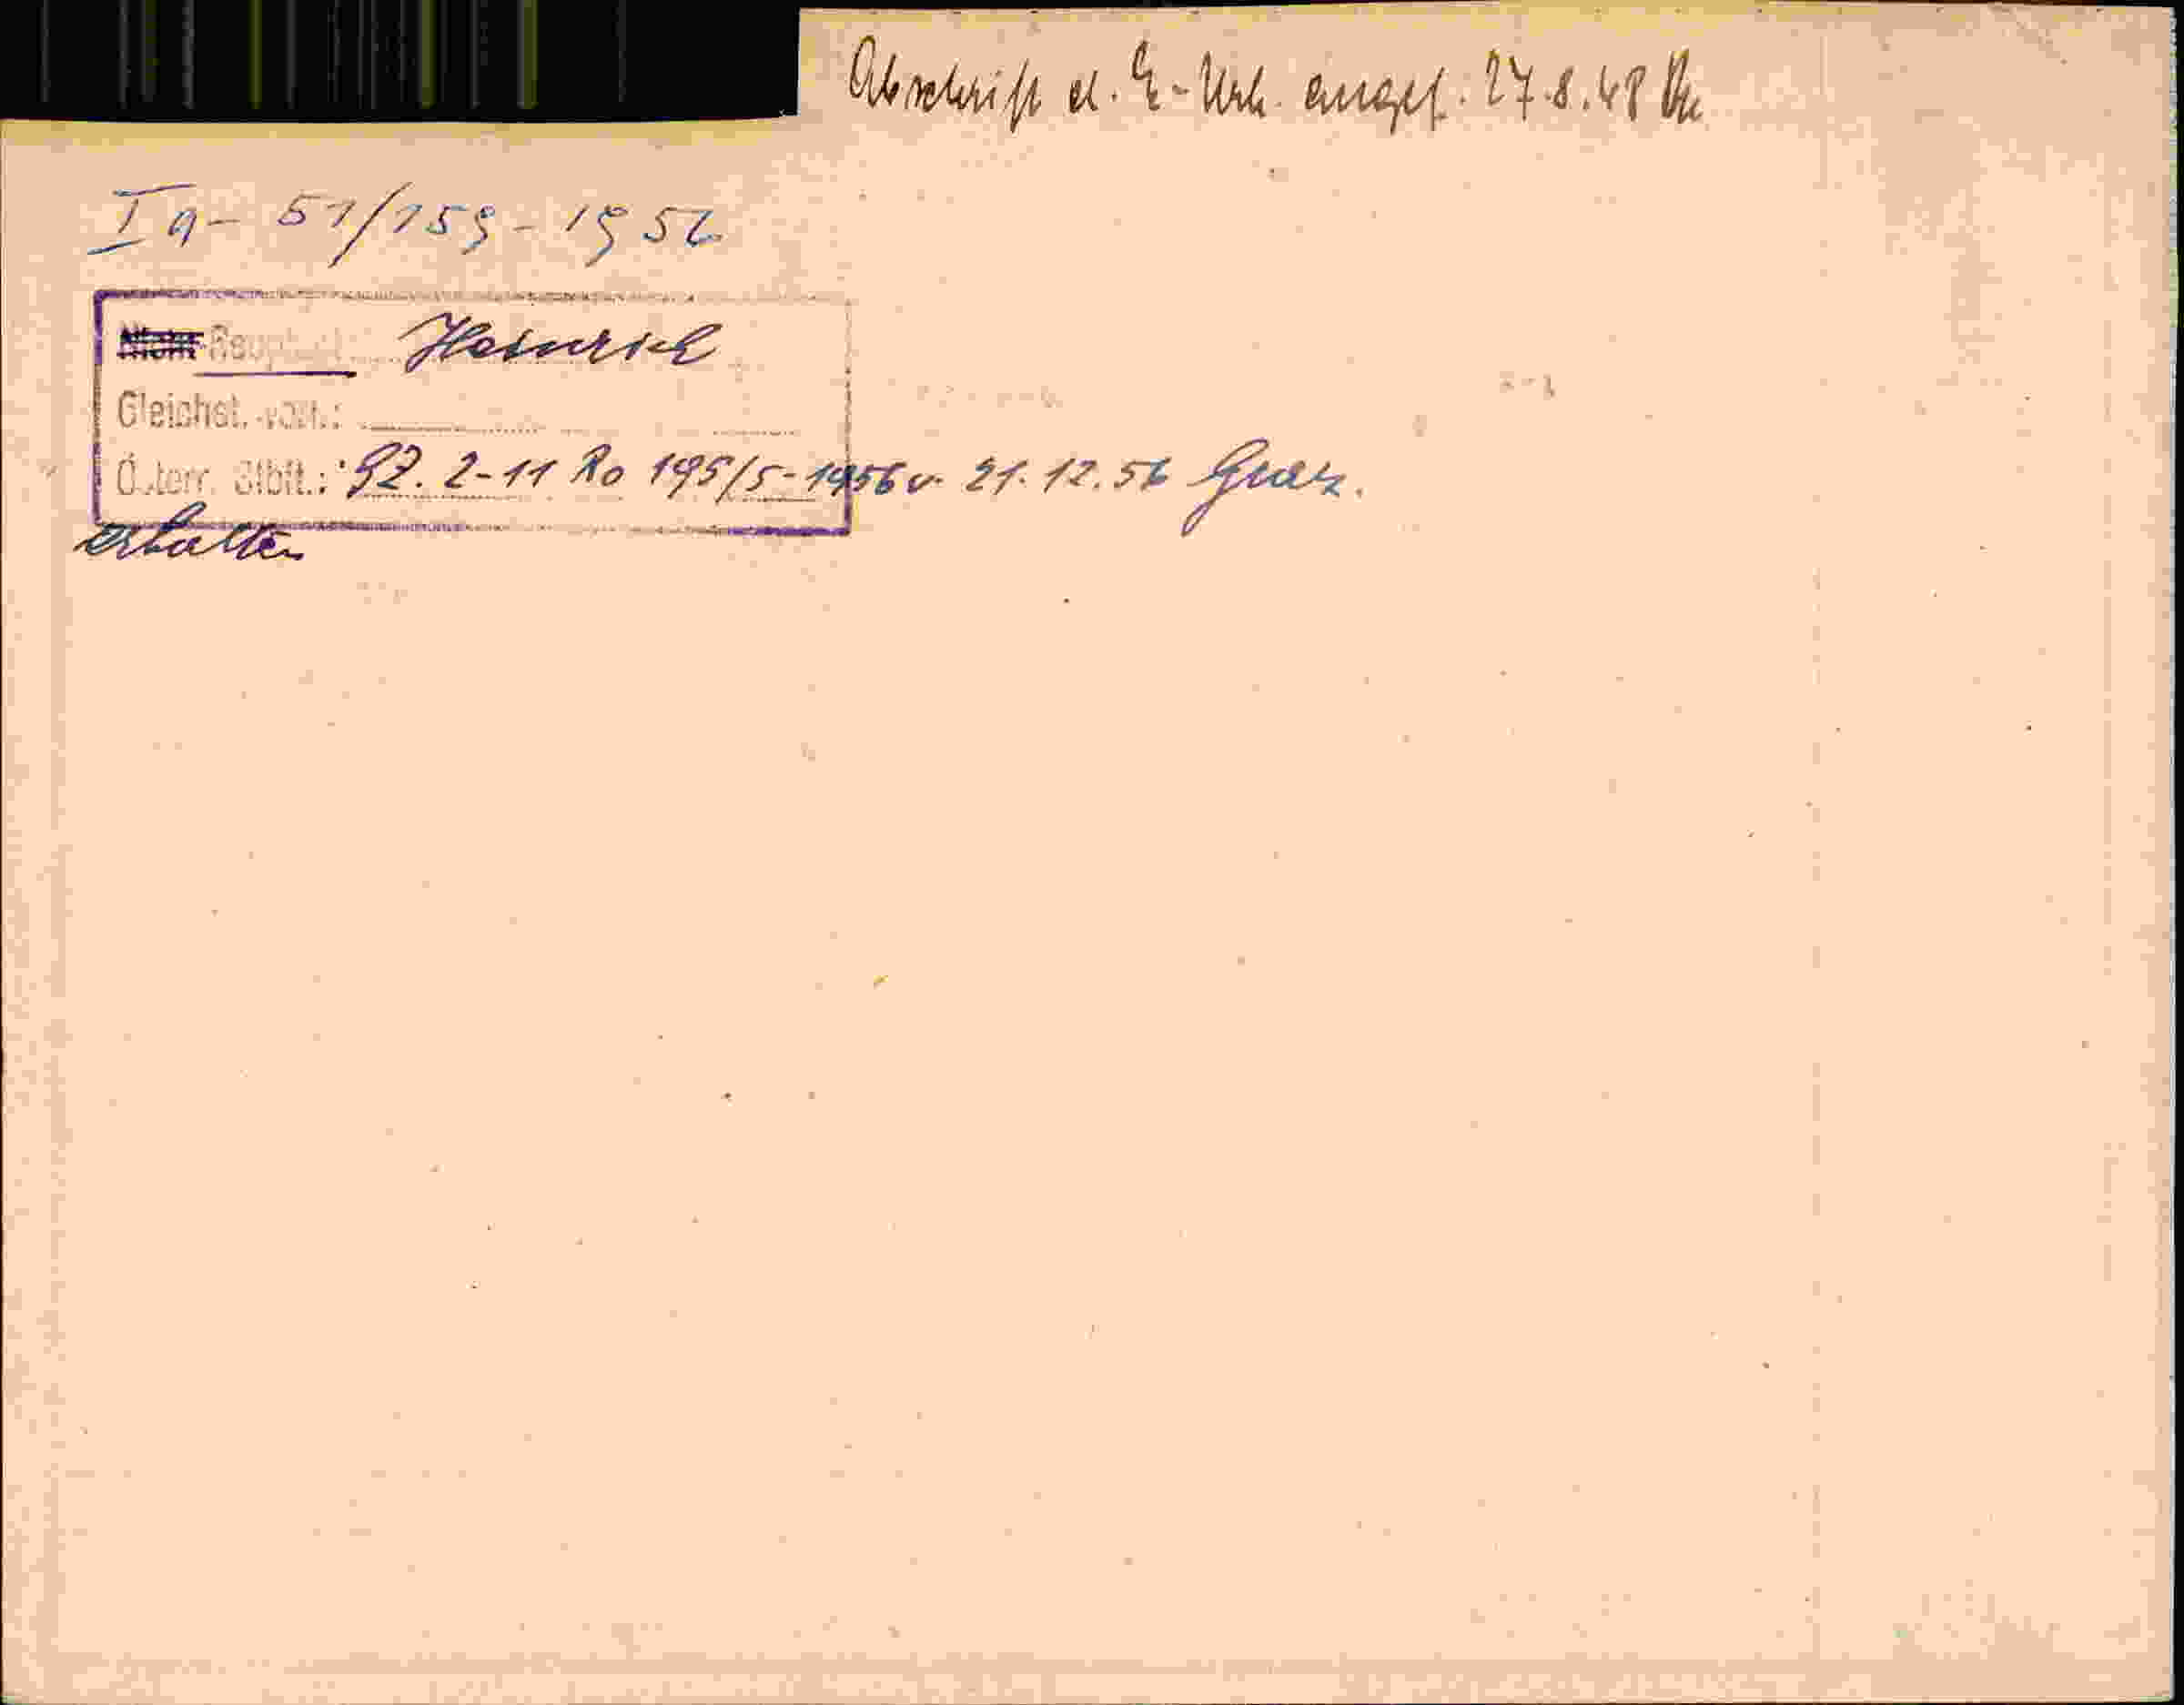 Abschrift d. E-Urk. angef. 27.8.48
I a - 51/159 - 1956
Nicht Heinrich
Gleichst. v. :
Österr. Stbft.: 92. 2-11 Ro 195/5-1956 v. 21.12.56 Graz.
erhalten